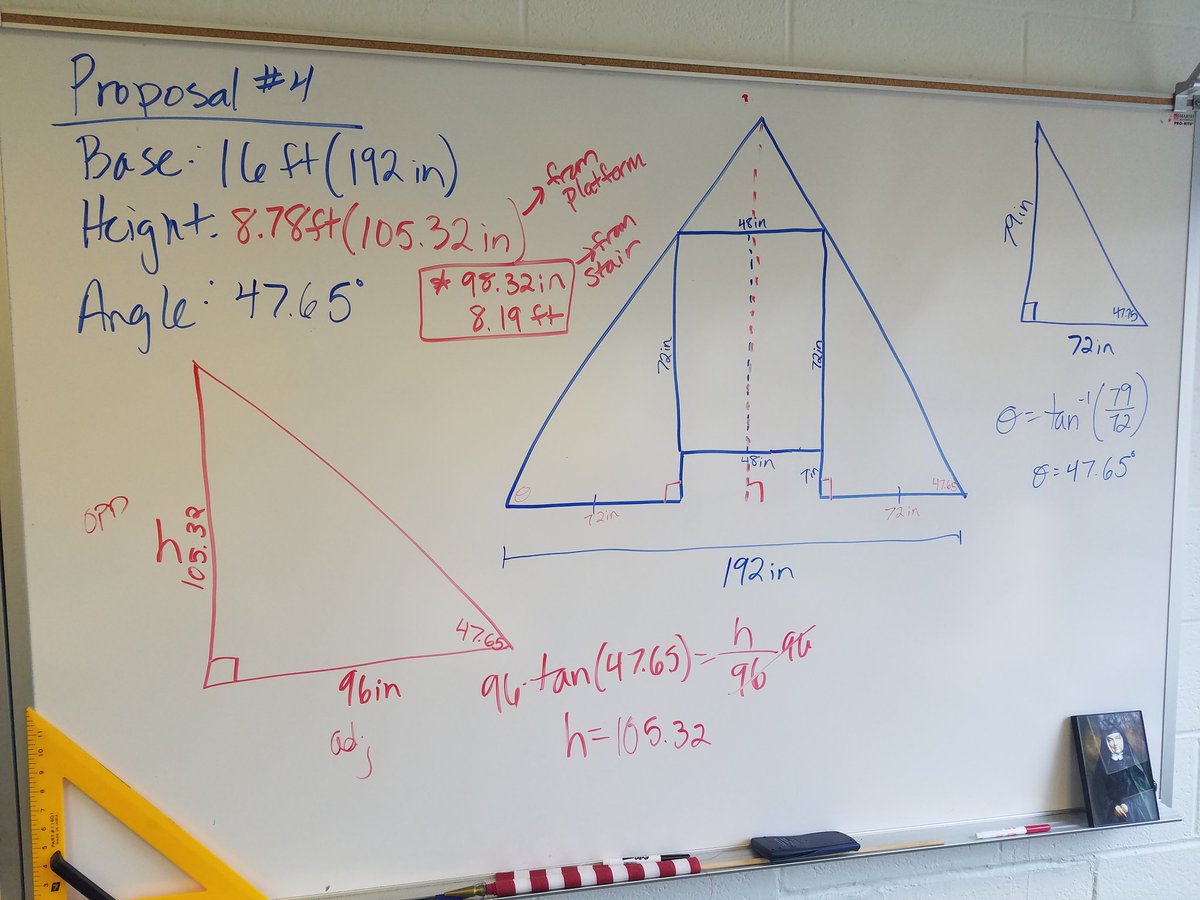 Proposal #4
Base: 16 ft (192 in)
Height: 8.78ft (105.32 in)
from platform
* 98.32 in
8.19 ft
from stair
Angle: 47.65°
48in
72in
72in
48in
7in
θ
47.65
72in
72in
192 in
79in
47.75
72in
θ = tan⁻¹(79/72)
θ = 47.65°
opp
h
105.32
47.65
96in
adj
96·tan(47.65) = h/96 · 96
h = 105.32